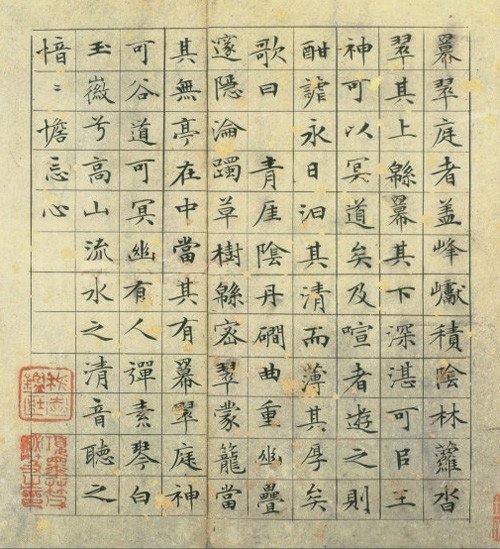 羃翠庭者蓋峰巘積陰林蘿沓
翠其上緜羃其下深湛可㠯王
神可以冥道矣及喧者遊之則
酣謔永日汩其清而薄其厚矣
歌曰 青厓陰丹磵曲重幽疊
邃隱淪躅草樹緜密翠蒙籠當
其無亭在中當其有羃翠庭神
可谷道可冥幽有人彈素琴白
玉徽兮高山流水之清音聽之
愔〻憺忘心